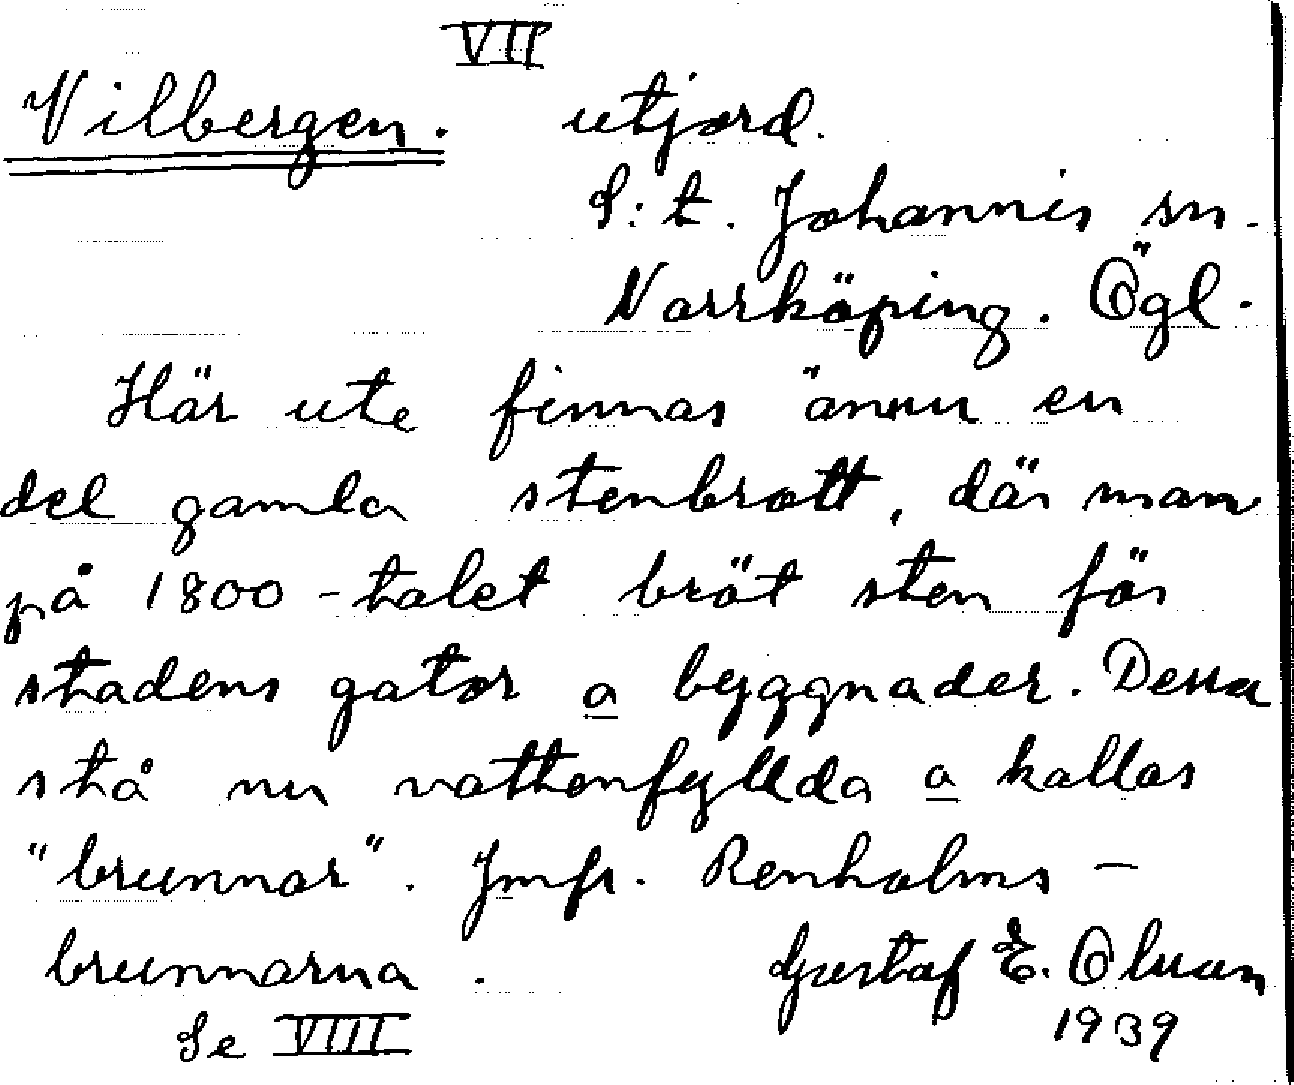 VII
Vilbergen. utjord.
S:t. Johannis sn.
Norrköping. Ögl.
Här ute finnas ännu en
del gamla stenbrott, där man
på 1800-talet bröt sten för
stadens gator a byggnader. Dessa
stå nu vattenfyllda a kallas
"brunnar". Jmfr. Renholms -
brunnarna. Gustaf E. Olsson
Se VIII 1939